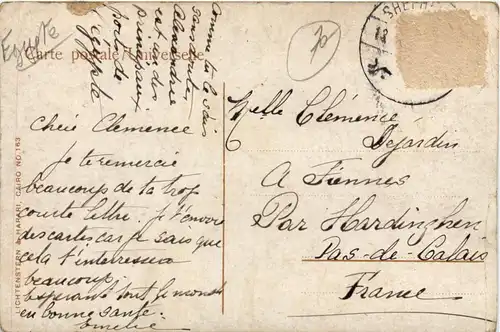 Egypte
Carte postale Universelle
Comme tu le sais
sans doute
Alexandrie
est un des
principaux
ports de
l'Egypte
76
SHEPH
Chère Clemence
Je te remercie
beaucoup de ta trop
courte lettre. Je t'envoie
des cartes car je sais que
cela t'interessera
beaucoup.
Esperant tout le monde
en bonne santé.
Amelie
Melle Clémence
Dejardin
A Fiennes
Par Hardinghen
Pas-de-Calais
France
LICHTENSTERN & HARARI, CAIRO NO. 163